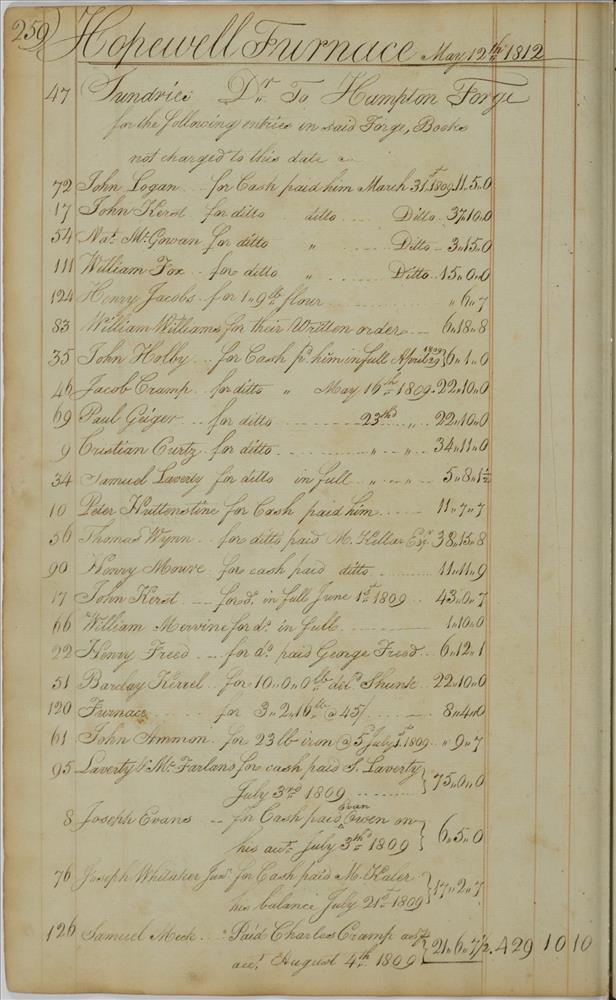 259) Hopewell Furnace May 12th 1812
47 Sundries Dr. To Hampton Forge
for the following entries in said Forge, Books
not charged to this date
72 John Logan .. for Cash paid him March 31st 1809. 11.5.0
17 John Kerst for ditto ditto .... Ditto. 37.10.0
54 Nat. McGowan for ditto " .... Ditto 3.15.0
111 William Fox .. for ditto " .... Ditto. 15.0.0
124 Henry Jacobs. for 1.9 lb flour .... " 6.7
83 William Williams for their Written order .... 6.18.8
35 John Holby ... for Cash pd. him in full April 29 1809 } 6.1.0
46 Jacob Cramp. for ditto " May 16th 1809. 22.10.0
69 Paul Geiger ... for ditto .... 23rd " .. 22.10.0
9 Cristian Curtz for ditto .... " .. " .. 34.11.0
34 Samuel Laverty for ditto in full .. " .. " .. 5.8.1½
10 Peter Huttenstine for Cash paid him .... 11.7.7
56 Thomas Wynn .. for ditto paid M. Kellar Esqr. 38.13.8
90 Henry Moure for cash paid ditto .... 11.11.9
17 John Kerst .... for do. in full June 1st 1809 .. 43.0.7
66 William Mervine for do. in full .... 1.10.0
22 Henry Freed ... for do. paid George Freed .. 6.12.1
51 Barclay Kerrel .. for 10.0.0 lb deld. Shunk .. 22.10.0
120 Furnace .... for 3.2.16 lb @ 45/ .... 8.4.0
61 John Ammon. for 23 lb iron @ 5d July 1st 1809 .. " 9.7
95 Laverty & McFarlans for cash paid S. Laverty
July 3rd 1809 .... } 75.0.0
8 Joseph Evans .. for Cash paid Owen Evan on
his acct. July 3th 1809 } 6.5.0
76 Joseph Whitaker Junr. for Cash paid M. Kaler
his balance July 21st 1809 } 17.2.7
126 Samuel Meek .. Paid Charles Cramp
acct. August 4th 1809 } 21.6.7½ . 429 10 10